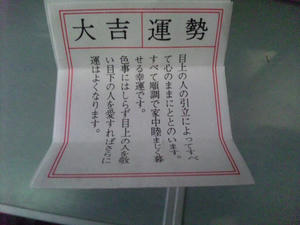 大吉運勢
目上の人の引立によってすべ
て心のままにととのいます。
すべて順調で家中睦まじく暮
せる幸運です。
色事にはしらず目上の人を敬
い目下の人を愛すればさらに
運はよくなります。